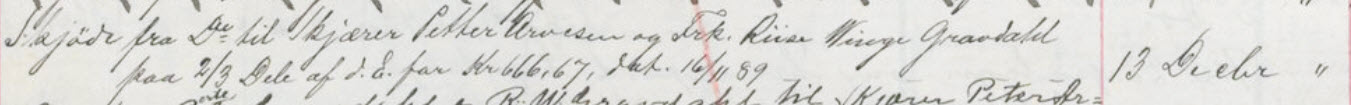 Skjöde fra Do til Skjærer Petter Arvesen og Frk. Riise Winge Gravdahl
paa 2/3 Dele af d. E. for Kr 666,67, dat. 16/11 89
13 Decbr "
til Skjærer Peter Ar=